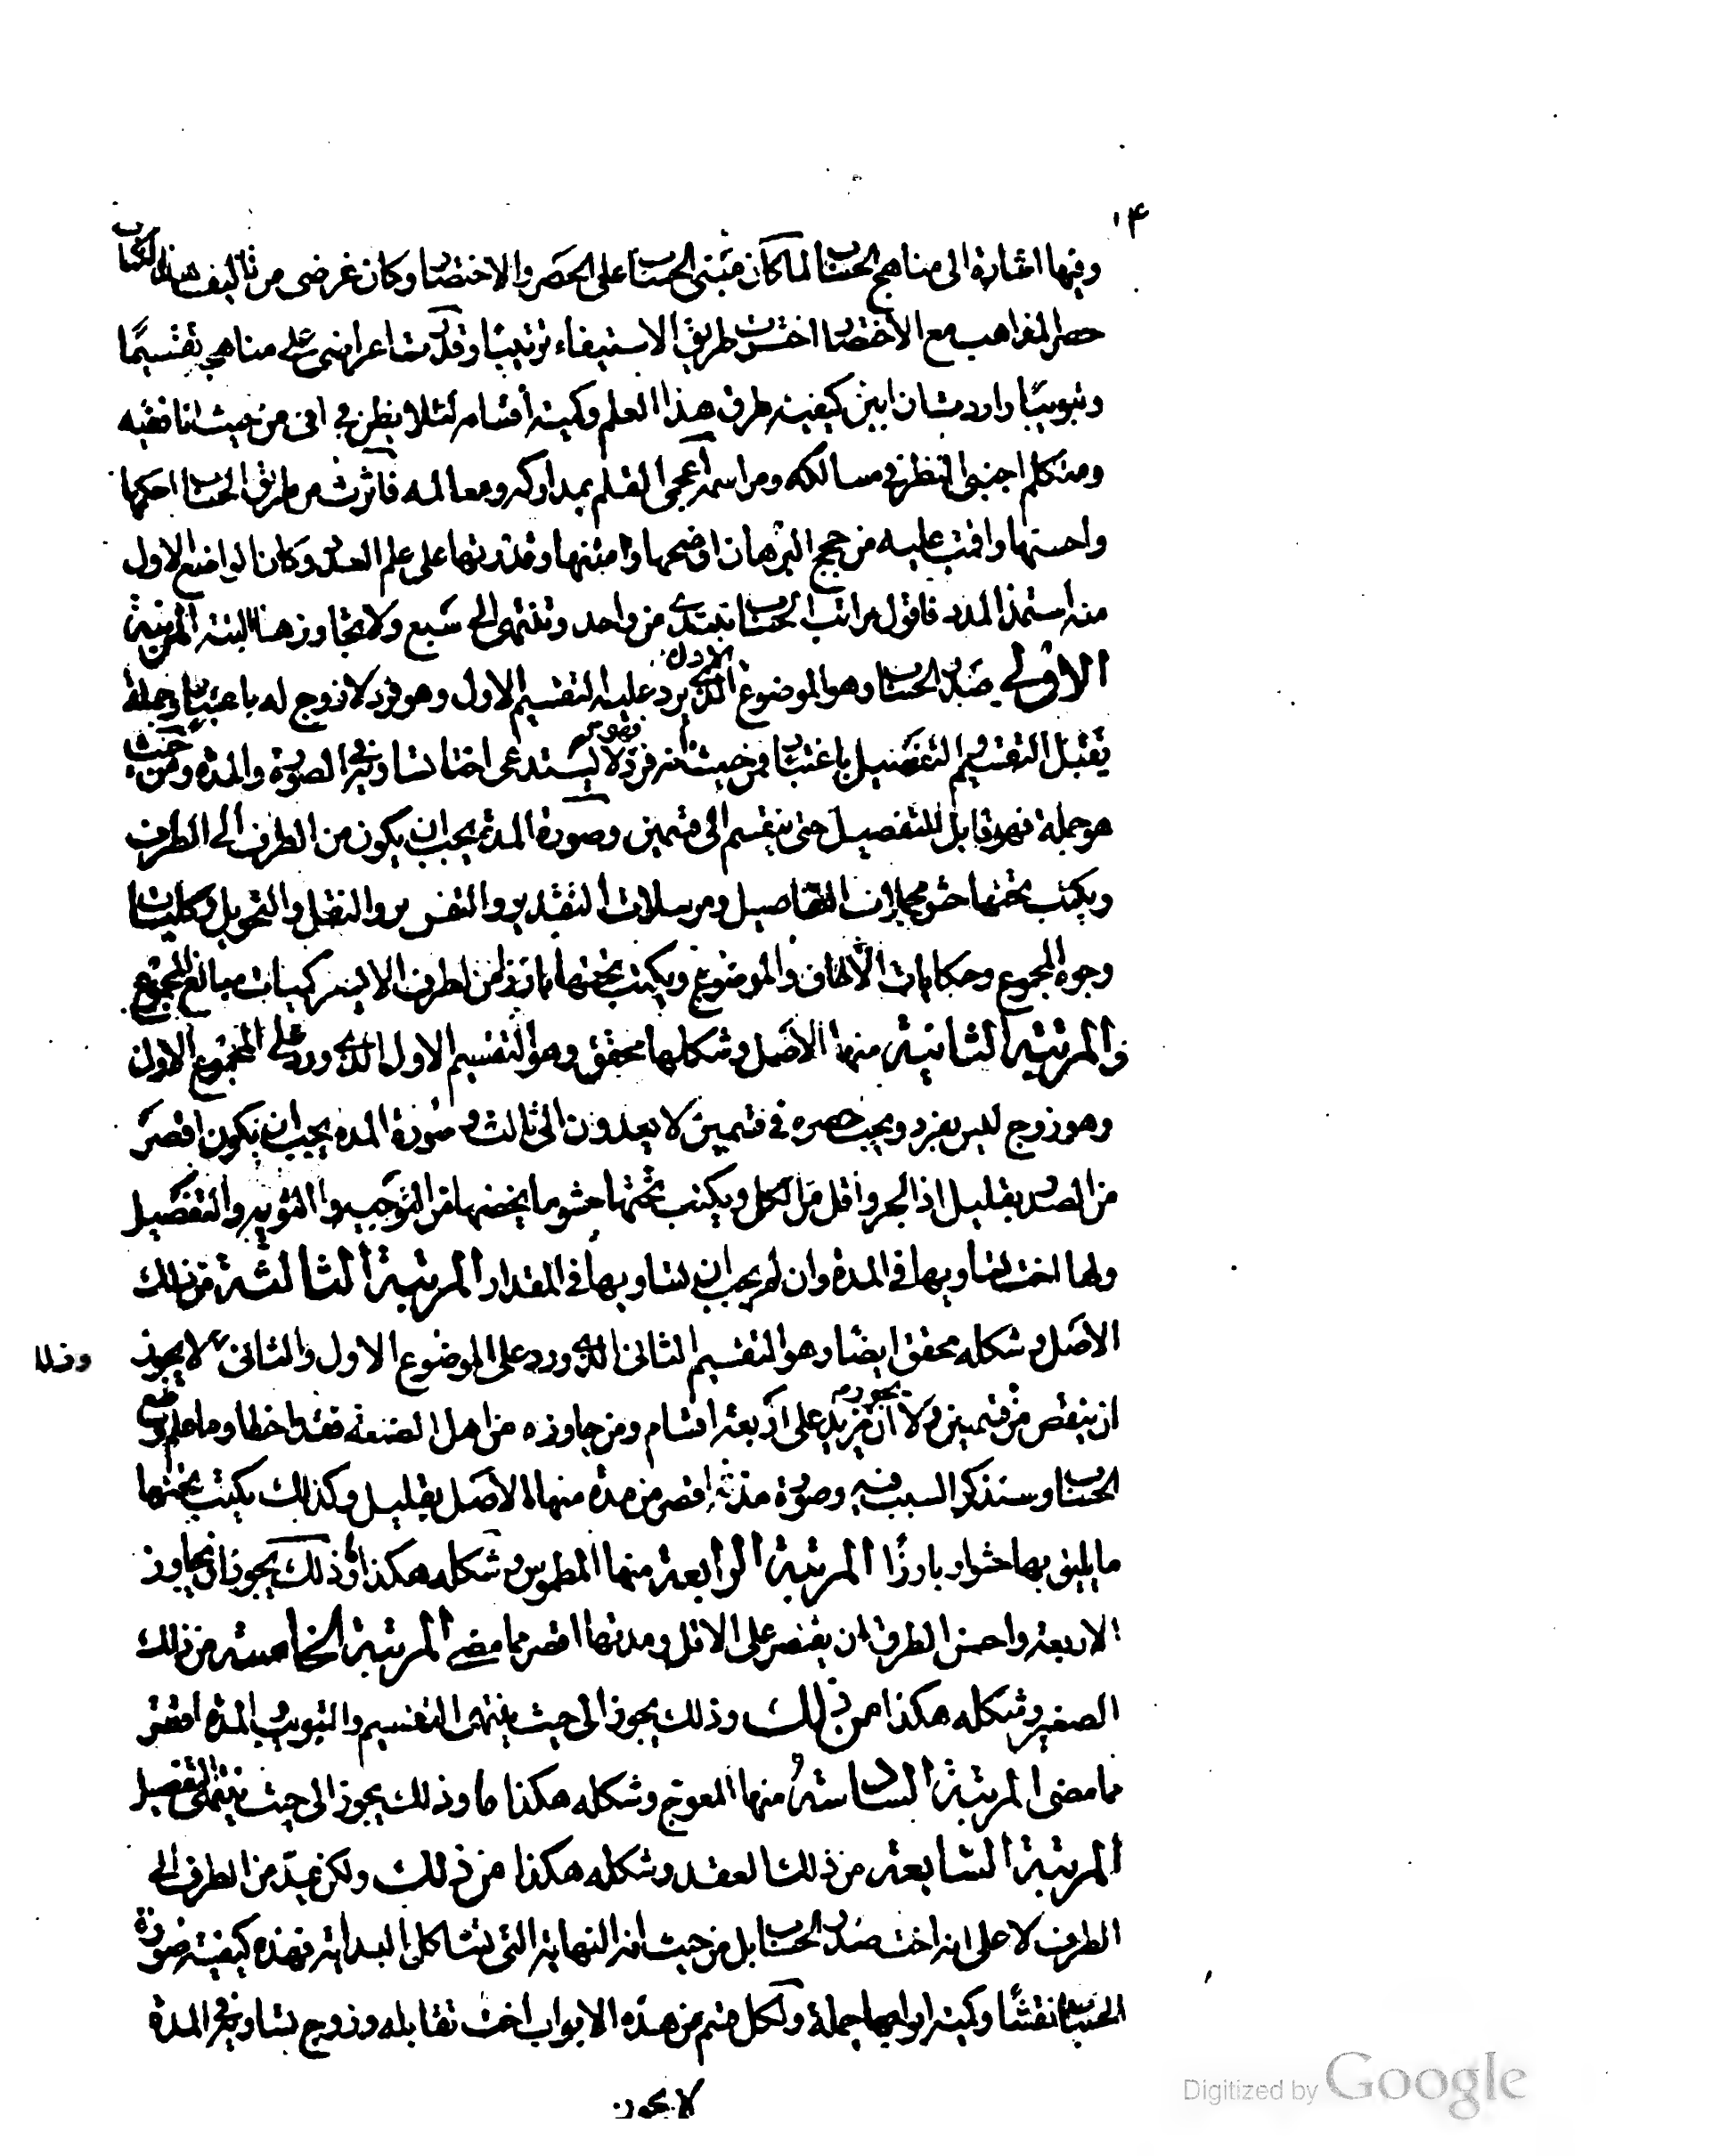 ١٤
وفيها اشارة الى مناهج الحساب لما كان مبنى الحساب على الحصر والاختصار وكان غرضى من تاليف هذا الكتاب
حصر المذاهب مع الاختصار اخترت طريق الاستيفاء ترتيبا وقدرت اغراضى على مناهجه تقسيما
وتبويبا واردت ان ابين كيفية طرق هذا العلم وكمية اقسامه لئلا يظن بى انى من حيث انا فقيه
ومتكلم اجنبى النظر فى مسالكه ومراسمه اعجمى القلم بمداركه ومعالمه فاثرت من طريق الحساب احكمها
واحسنها واقمت عليه من حجج البرهان اوضحها وامتنها وقدرتها على علم العدد وكان الواضع الاول
منه استمد المدد فاقول مراتب الحساب تبتدى من واحد وتنتهى الى سبع ولا تجاوزها البتة المرتبة
الاولى صدر الحساب وهو الموضوع الاول الذى يرد عليه التقسيم الاول وهو فرد لا زوج له باعتبار وجملة
يقبل التقسيم والتفصيل باعتبار فمن حيث انه فرد فهو لا يستدعى اختا تساويه فى الصورة والمدة ومن حيث
هو جملة فهو قابل للتفصيل حتى ينقسم الى قسمين وصورة المدة يجب ان يكون من الطرف الى الطرف
ويكتب تحتها حشوا مجملات التفاصيل ومرسلات التقدير والتقرير والنقل والتحويل وكليات
وجوه المجموع وحكايات الالحاق والموضوع ويكتب تحتها بارزا من الطرف الايسر كميات مبالغ المجموع
والمرتبة الثانية منها الاصل وشكلها محقق وهو التقسيم الاول الذى ورد على المجموع الاول
وهو زوج ليس بفرد ويجب حصره فى قسمين لا يعدوان الى ثالث وصورة المدة يجب ان يكون اقصر
من الصدر بقليل اذ الجزء اقل من الكل ويكتب تحتها حشوا ما يخصها من التوجيه والتنويع والتفصيل
ولها اخت تساويها فى المدة وان لم يجب ان تساويها فى المقدار المرتبة الثالثة من ذلك
الاصل وشكله محقق ايضا وهو التقسيم الثانى الذى ورد على الموضوع الاول والثانى لا يجوز
وذلك
ان ينقص من قسمين ولا يجوز ان يزيد على اربعة اقسام ومن جاوزه من اهل الصنعة فقد اخطا وما علم وضع
الحساب وسنذكر السبب فيه وصورة مدته اقصر من مدة منها الاصل بقليل وكذلك يكتب تحتها
ما يليق بها حشوا وبارزا المرتبة الرابعة منها المطموس وشكله هكذا وذلك يجوز ان يجاوز
الاربعة واحسن الطرق ان يقتصر على الاقل ومدتها اقصر مما مضى المرتبة الخامسة من ذلك
الصغير وشكله هكذا من ذلك وذلك يجوز الى حيث ينتهى التقسيم والتبويب والمدة اقصر
مما مضى المرتبة السادسة منها المعوج وشكله هكذا وذلك يجوز الى حيث ينتهى التفصيل
المرتبة السابعة من ذلك المعقد وشكله هكذا من ذلك ولكن يمد من الطرف الى
الطرف لا على انه اخت صدر الحساب بل من حيث انه النهاية التى تشاكل البداية فهذه كيفية صورة
الحساب نقشا وكمية ابوابها جملة ولكل قسم من هذه الابواب اخت تقابله وزوج تساويه فى المدة
لا يجوز